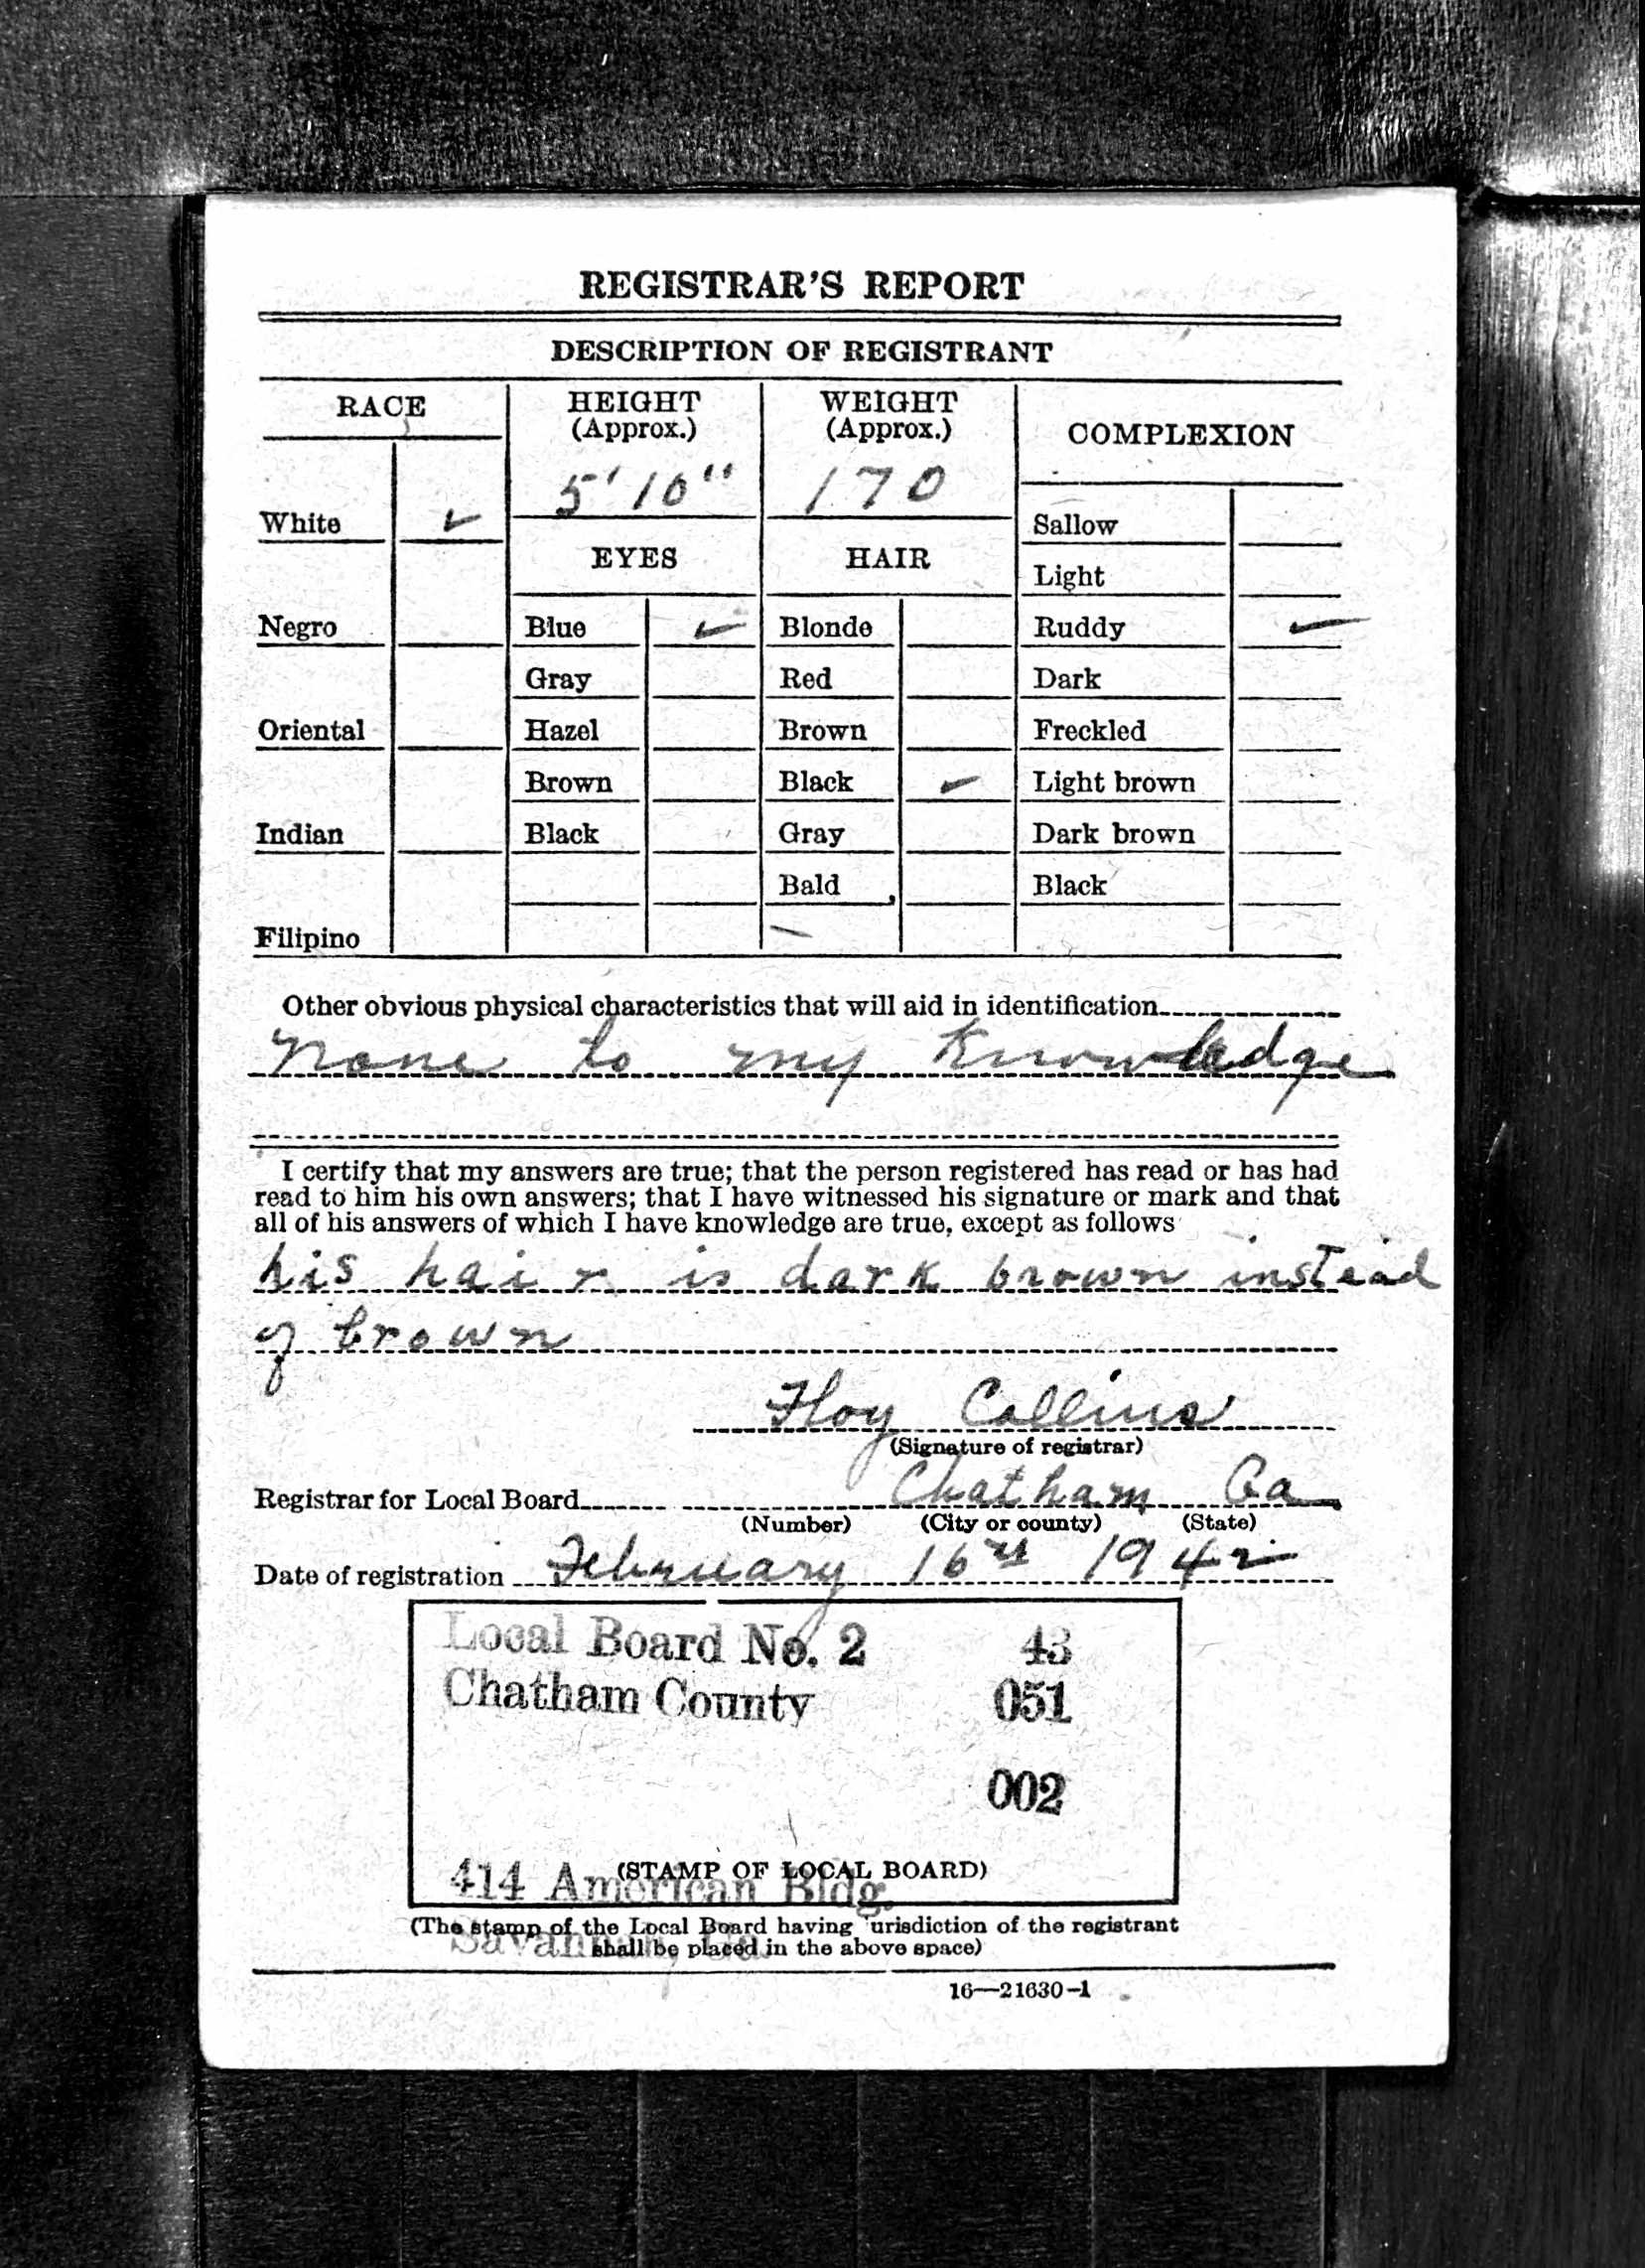 REGISTRAR'S REPORT
DESCRIPTION OF REGISTRANT
RACE
HEIGHT
(Approx.)
WEIGHT
(Approx.)
COMPLEXION
5' 10"
170
White ✓
Sallow
EYES
HAIR
Light
Negro
Blue ✓
Blonde
Ruddy ✓
Gray
Red
Dark
Oriental
Hazel
Brown
Freckled
Brown
Black ✓
Light brown
Indian
Black
Gray
Dark brown
Bald
Black
Filipino
Other obvious physical characteristics that will aid in identification
None to my knowledge
I certify that my answers are true; that the person registered has read or has had
read to him his own answers; that I have witnessed his signature or mark and that
all of his answers of which I have knowledge are true, except as follows
his hair is dark brown instead
of brown
Floy Collins
(Signature of registrar)
Registrar for Local Board Chatham Ga
(Number) (City or county) (State)
Date of registration February 16th 1942
Local Board No. 2 43
Chatham County 051
002
(STAMP OF LOCAL BOARD)
414 American Bldg.
(The stamp of the Local Board having urisdiction of the registrant
Savannah, Ga.
shall be placed in the above space)
16—21630-1